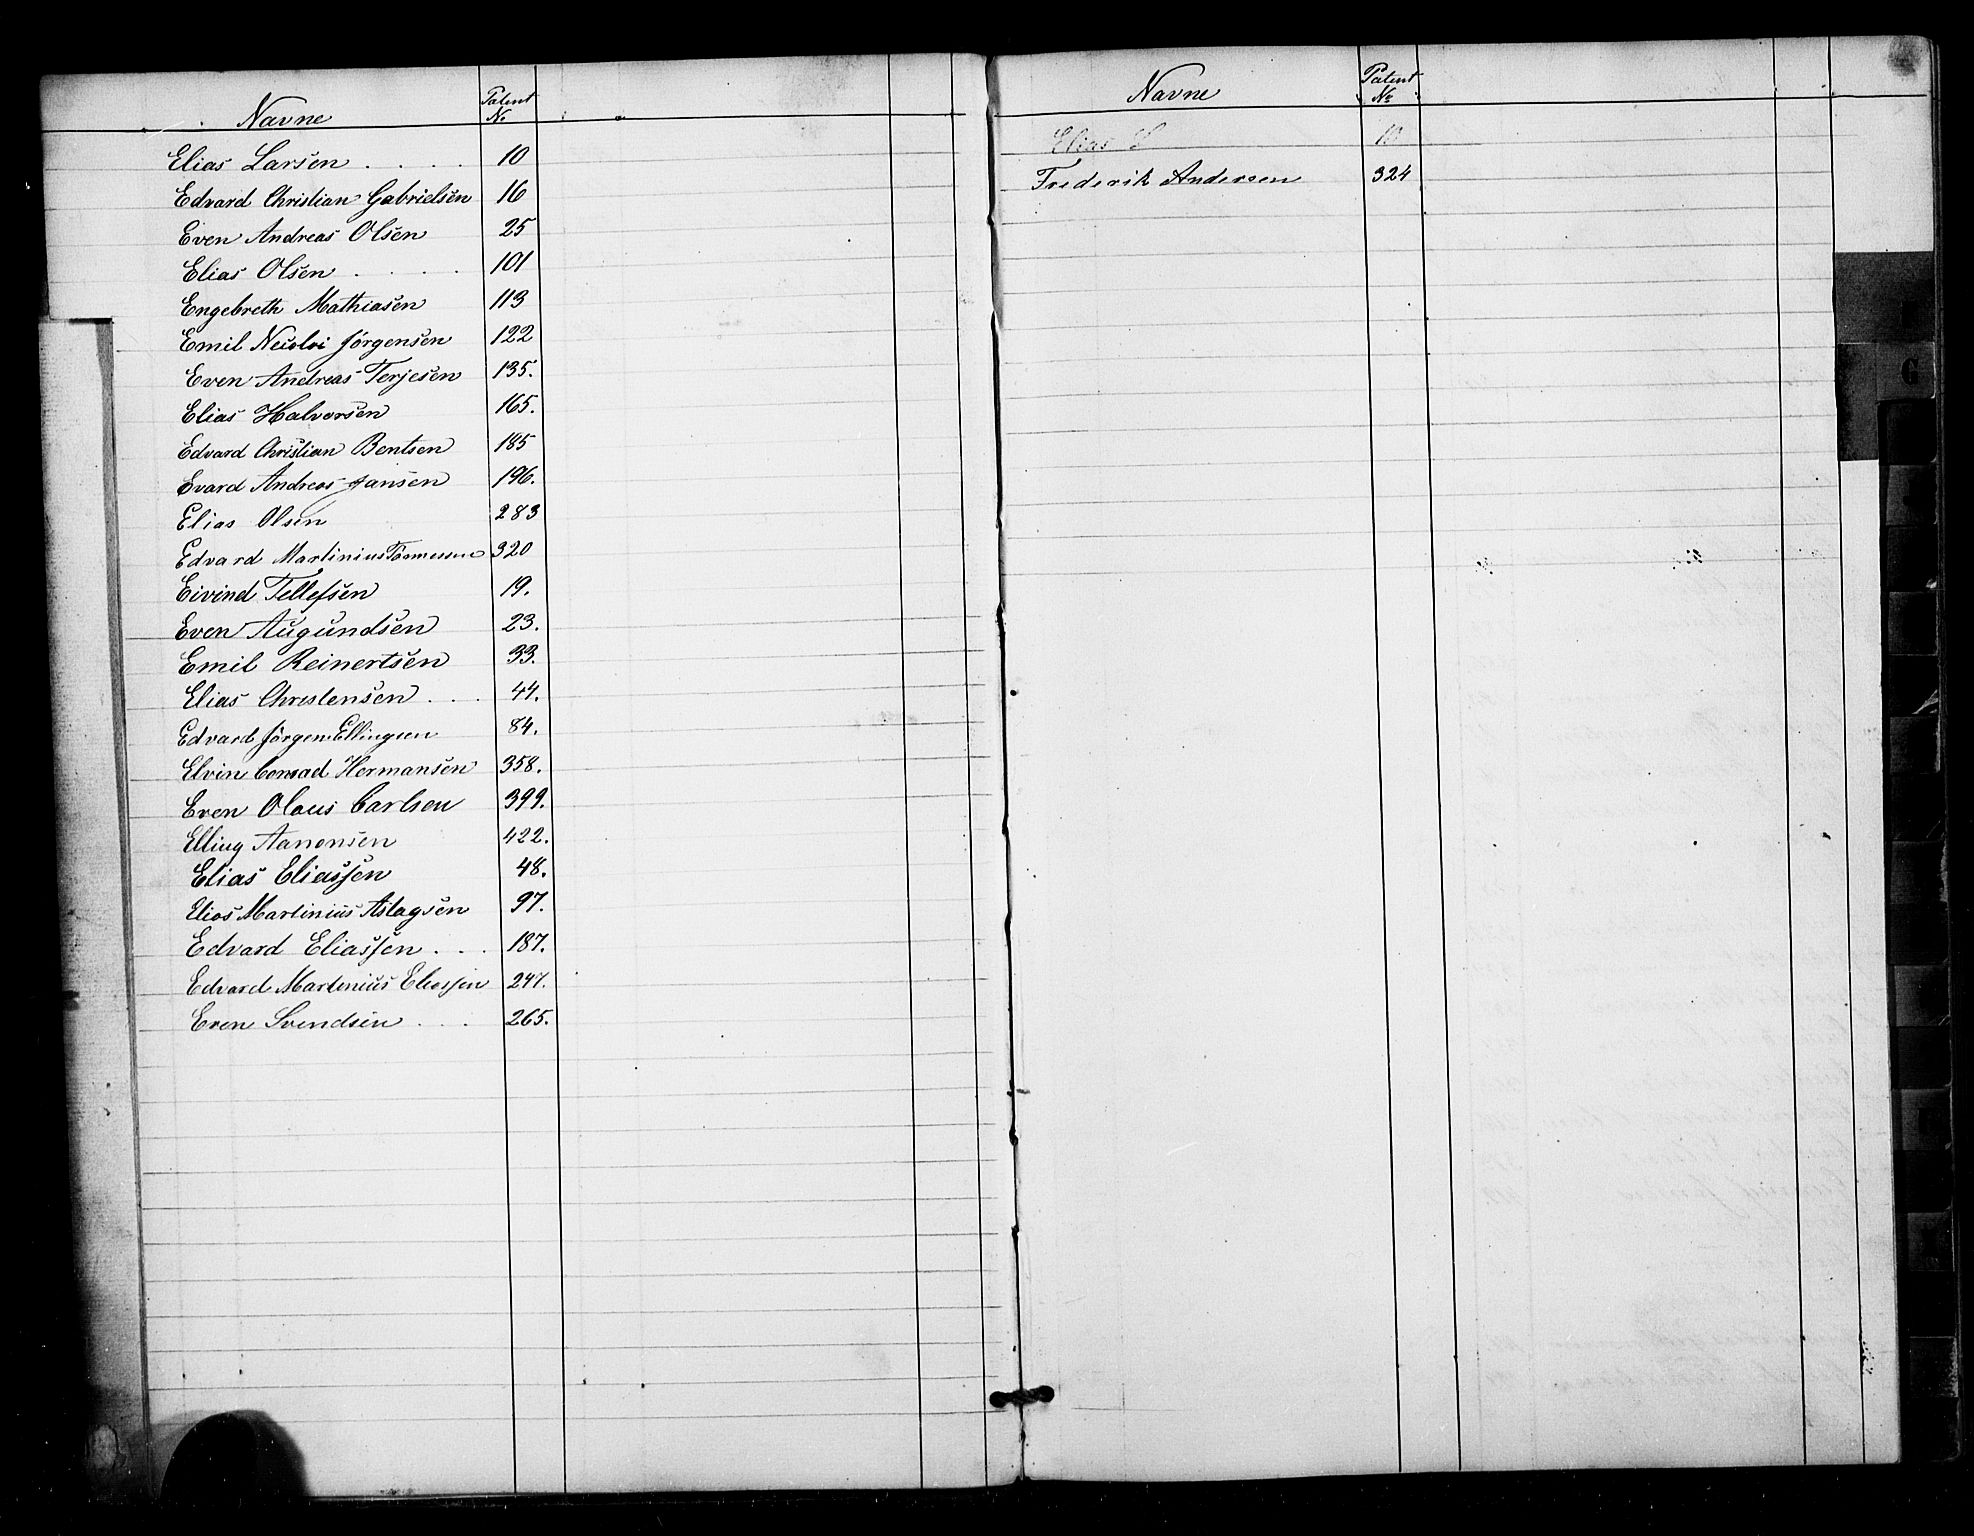 Navne Patent No
Elias Larsen . . . . 10
Edvard Christian Gabrielsen 16
Even Andreas Olsen 25
Elias Olsen . . . . 101
Engebreth Mathiasen 113
Emil Nicolai Jörgensen 122
Even Andreas Terjesen 135.
Elias Halvorsen 165.
Edvard Christian Bentsen 185
Evard Andreas Jansen 196.
Elias Olsen 283
Edvard Martinius Tönnessen 320
Eivind Tellefsen 19.
Even Augundsen 23.
Emil Reinertsen 33.
Elias Christensen . . . 44.
Edvard Jörgen Ellingsen 84.
Elvin Conrad Hermansen 358.
Even Olaus Carlsen 399.
Elling Aanonsen 422.
Elias Eliassen 48.
Elias Martinius Aslagsen 97.
Edvard Eliassen . . . 187.
Edvard Martinius Eliassen 247.
Even Svendsen . . . 265.
Navne Patent No
Elias L 10
Frederik Andersen 324